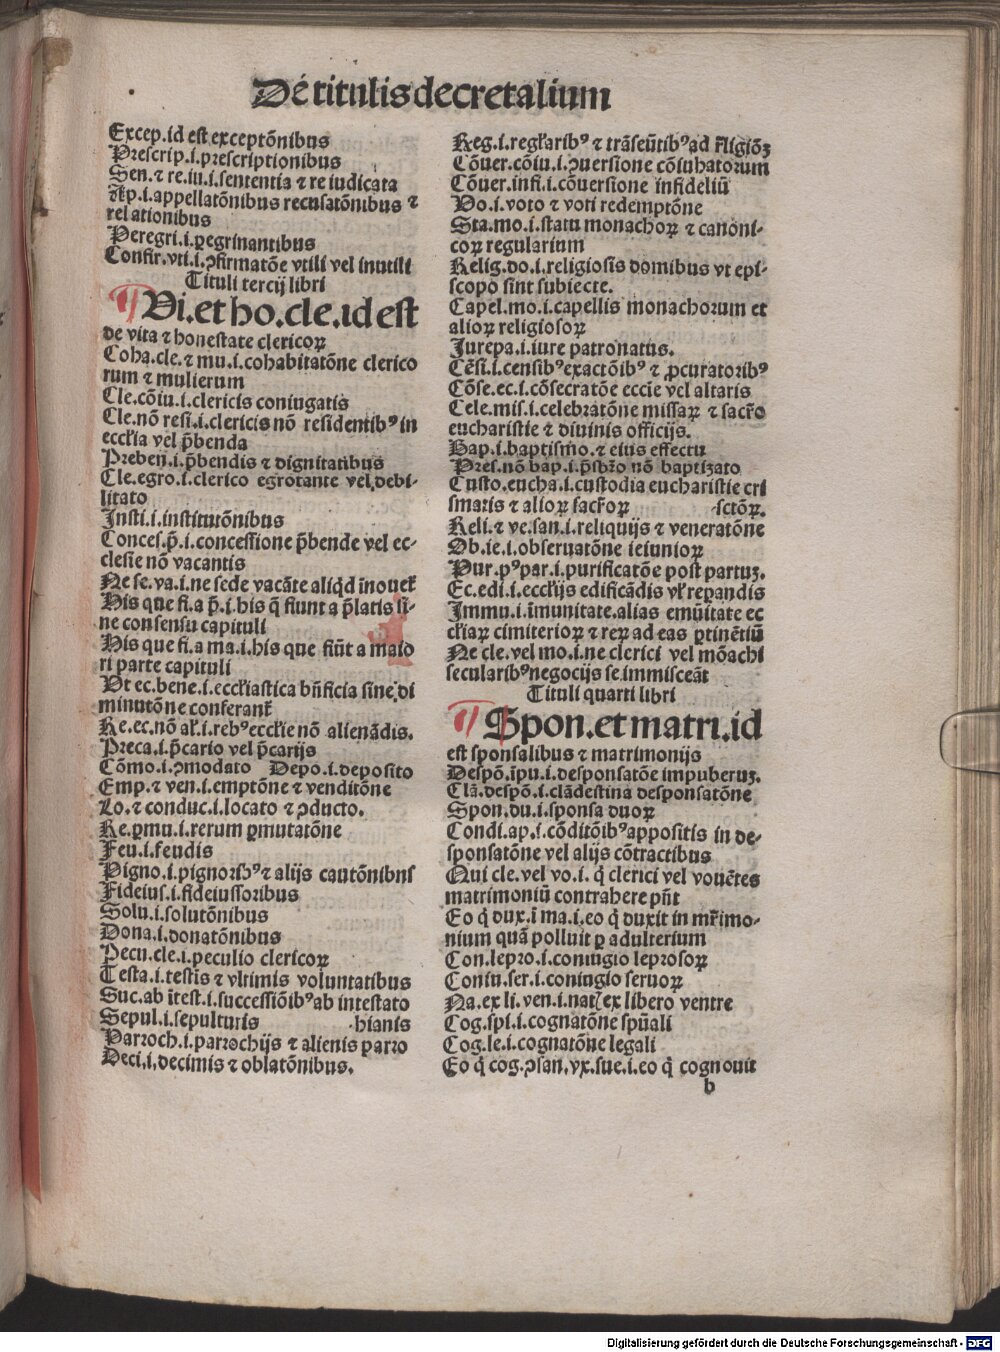 De titulis decretalium
Excep. id est exceptõnibus
Prescrip.i.prescriptionibus
Sen.⁊ re.iu.i.sententia ⁊ re iudicata
Ap̃p.i.appellatõnibus recusatõnibus ⁊
relationibus
Peregri.i.ꝑegrinantibus
Confir.vti.i.ꝯfirmatõe vtili vel inutili
Tituli tercij libri
Vi.et ho.cle.id est
de vita ⁊ honestate clericoꝝ
Coha.cle.⁊ mu.i.cohabitatõne clerico
rum ⁊ mulierum
Cle.cõiu.i.clericis coniugatis
Cle.nõ resi.i.clericis nõ residentibꝰ in
eccľia vel p̃benda
Preben.i.p̃bendis ⁊ dignitatibus
Cle.egro.i.clerico egrotante vel debi-
litato
Insti.i.institutõnibus
Conces.p̃.i.concessione p̃bende vel ec-
clesie nõ vacantis
Ne se.va.i.ne sede vacãte aliqd̃ ĩnouet̃
His que fi.a p̃.i.his q̃ fiunt a p̃latis si-
ne consensu capituli
His que fi.a ma.i.his que fiũt a maio
ri parte capituli
Vt ec.bene.i.eccľiastica bñficia sine di
minutõne conferant̃
Re.ec.nõ al̃.i.rebꝰ eccľie nõ alienãdis.
Preca.i.p̃cario vel p̃carijs
Cõmo.i.ꝯmodato Depo.i.deposito
Emp.⁊ ven.i.emptõne ⁊ venditõne
Lo.⁊ conduc.i.locato ⁊ ꝯducto.
Re.ꝑmu.i.rerum ꝑmutatõne
Feu.i.feudis
Pigno.i.pignoribꝰ ⁊ alijs cautõnibus
Fideius.i.fideiussoribus
Solu.i.solutõnibus
Dona.i.donatõnibus
Pecu.cle.i.peculio clericoꝝ
Testa.i.testis ⁊ vltimis voluntatibus
Suc.ab ĩtest.i.successiõibꝰ ab intestato
Sepul.i.sepulturis .hianis
Parroch.i.parrochijs ⁊ alienis parro
Deci.i.decimis ⁊ oblatõnibus.
Reg.i.regľaribꝰ ⁊ trãseũtibꝰ ad r̃ligiõꝫ
Cõuer.cõiu.i.ꝯuersione cõiuhatorum
Cõuer.infi.i.cõuersione infideliũ
Vo.i.voto ⁊ voti redemptõne
Sta.mo.i.statu monachoꝝ ⁊ canoni-
coꝝ regularium
Relig.do.i.religiosis domibus vt epi-
scopo sint subiecte.
Capel.mo.i.capellis monachorum et
alioꝝ religiosoꝝ
Jurepa.i.iure patronatus.
Cẽsi.i.censibꝰ exactõibꝰ ⁊ ꝓcuratoribꝰ
Cõse.ec.i.cõsecratõe eccĩe vel altaris
Cele.mis.i.celebratõne missaꝝ ⁊ sacr̃o
eucharistie ⁊ diuinis officijs.
Bap.i.baptism̃o.⁊ eius effectu
Pres.nõ bap.i.p̃sbr̃o nõ baptizato
Custo.eucha.i.custodia eucharistie cri
smatis ⁊ alioꝝ sacr̃oꝝ .sctõꝝ.
Reli.⁊ ve.san.i.reliquijs ⁊ veneratõne
Ob.ie.i.obseruatõne ieiunioꝝ
Pur.pꝰ par.i.purificatõe post partuꝫ.
Ec.edi.i.eccľijs edificãdis vl̃ reꝑandis
Immu.i.ĩmunitate.alias emũitate ec
cľiaꝝ cimiterioꝝ ⁊ reꝝ ad eas ꝑtinẽtiũ
Ne cle.vel mo.i.ne clerici vel mõachi
secularibꝰ negocijs se immisceãt
Tituli quarti libri
Spon.et matri.id
est sponsalibus ⁊ matrimonijs
Despõ.ĩpu.i.desponsatõe impuberuꝫ.
Clã.despõ.i.clãdestina desponsatõne
Spon.du.i.sponsa duoꝝ
Condi.ap.i.cõditõibꝰ appositis in de-
sponsatõne vel alijs cõtractibus
Qui cle.vel vo.i.q̃ clerici vel vouẽtes
matrimoniũ contrahere pñt
Eo q̃ dux.ĩ ma.i.eo q̃ duxit in mr̃imo-
nium quã polluit ꝑ adulterium
Con.lepro.i.coniugio leprosoꝝ
Coniu.ser.i.coniugio seruoꝝ
Na.ex li.ven.i.nat̃ ex libero ventre
Cog.spi.i.cognatõne spũali
Cog.le.i.cognatõne legali
Eo q̃ cog.ꝯsan.vx.sue.i.eo q̃ cognouit
b
Digitalisierung gefördert durch die Deutsche Forschungsgemeinschaft - DFG